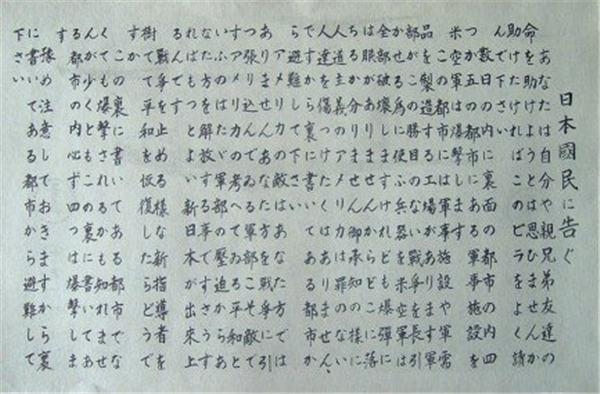 日本國民に告ぐ
あなたは自分や親兄弟友達の
命を助けようとは思ひませんか
助けたければこのビラをよく讀
んで下さい
数日の内に裏面の都市の内四
つか五つの都市にある軍事施設を
米空軍は爆撃します
この都市には軍事施設や軍需
品を製造する工場があります軍
部がこの勝目のない戦争を長引
かせる為に使ふ兵器を米空軍は
全部破壊しますけれども爆弾に
は眼がありませんからどこに落
ちるか分りません御承知の様に
人道主義のアメリカは罪のない
人達を傷つけたくはありません
ですから裏に書いてある都市
から避難して下さい
アメリカの敵はあなた方では
ありませんあなた方を戦争に引
つ張り込んでゐる軍部こそ敵で
すアメリカの考へてゐる平和と
いふのはたゞ軍部の壓迫からあ
なた方を解放する事ですそうす
ればもつとよい新日本が出来上
るんです
戦争を止める様な新指導者を
樹てて平和を恢復したらどうで
すか
この裏に書いてある都市でな
くても爆撃されるかも知れませ
んが少くともこの裏に書いてあ
る都市の内必ず四つは爆撃しま
す
豫め注意しておきますから裏
に書いてある都市から避難して
下さい